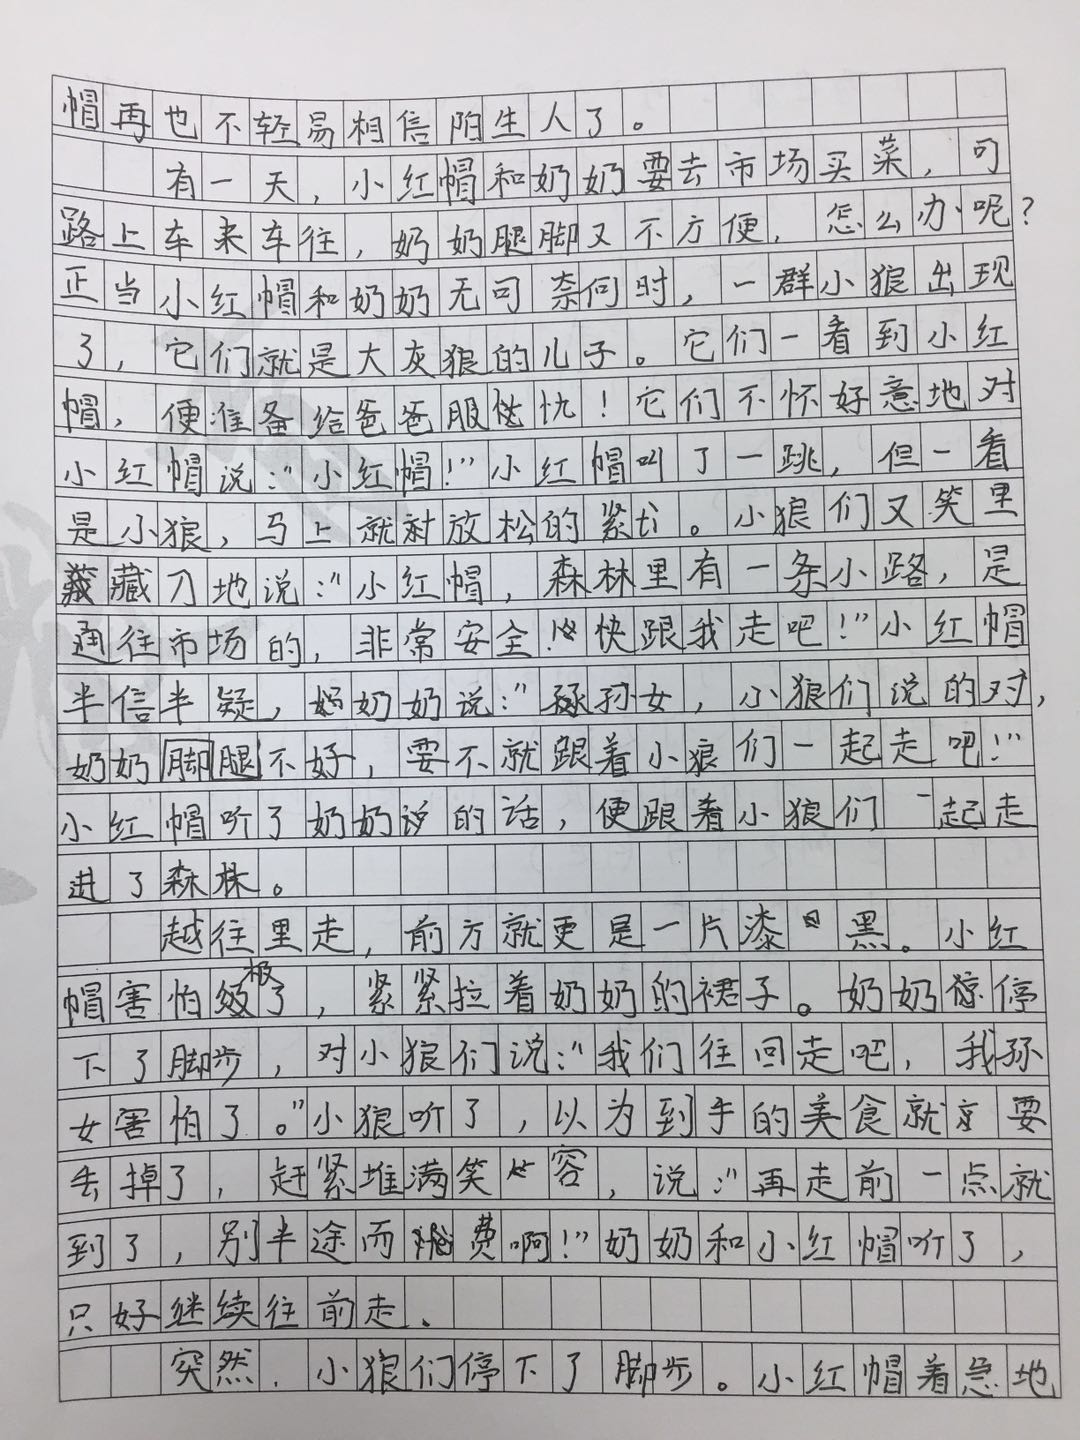 帽再也不轻易相信陌生人了。
有一天，小红帽和奶奶要去市场买菜，可
路上车来车往，奶奶腿脚又不方便，怎么办呢？
正当小红帽和奶奶无可奈何时，一群小狼出现
了，它们就是大灰狼的儿子。它们一看到小红
帽，便准备给爸爸服仇！它们不怀好意地对
小红帽说：“小红帽！”小红帽叫了一跳，但一看
是小狼，马上就放松的紧。小狼们又笑里
藏刀地说：“小红帽，森林里有一条小路，是
通往市场的，非常安全！快跟我走吧！”小红帽
半信半疑，奶奶说：“孙女，小狼们说的对，
奶奶脚腿不好，要不就跟着小狼们一起走吧！”
小红帽听了奶奶说的话，便跟着小狼们一起走
进了森林。
越往里走，前方就更是一片漆黑。小红
帽害怕极了，紧紧拉着奶奶的裙子。奶奶停
下了脚步，对小狼们说：“我们往回走吧，我孙
女害怕了。”小狼听了，以为到手的美食就要
丢掉了，赶紧堆满笑容，说：“再走前一点就
到了，别半途而费啊！”奶奶和小红帽听了，
只好继续往前走。
突然，小狼们停下了脚步。小红帽着急地